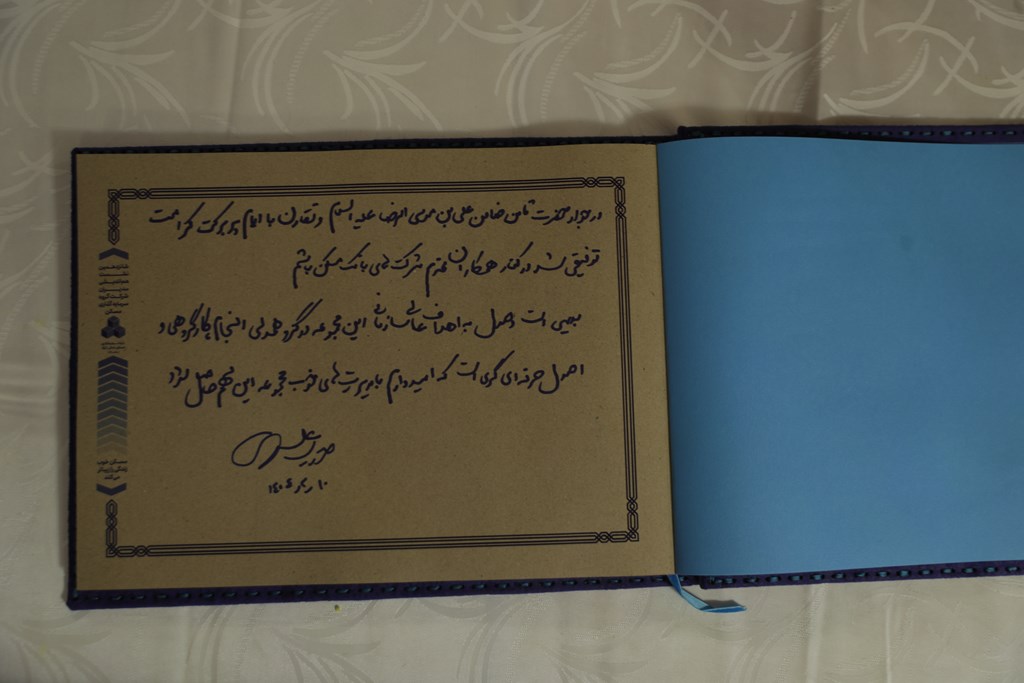 در جوار حضرت ثامن ضامن علی بن موسی الرضا علیه السلام و تقارن با ایام پر برکت کرامت
توفیقی شد در کنار همکاران محترم شرکت های بانک مسکن باشم
بدیهی است وصول به اهداف عالی سازمانی این مجموعه در گرو همدلی انجام کار گروهی و
اصول حرفه ای گری است که امیدوارم با مدیریت های خوب مجموعه این مهم حاصل شود
مسکن خوب
زندگی را زیباتر
می‌کند